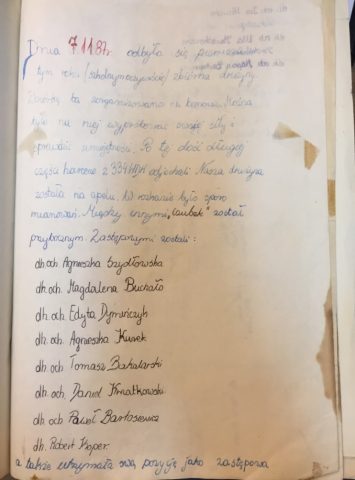 Dnia 7.11.87r odbyła się pierwsza w
tym roku (szkolnym oczywiście) zbiórka drużyny.
Zbiórkę tą zorganizowano ch. harcowa. Można
było na niej wypróbować swoje siły i
sprawdzić umiejętności. Po tej dość długiej
części harcerze z 334 WDH odjechali. Nasza drużyna
została na apelu. W rozkazie było sporo
mianowań. Między innymi „Czubek" został
przybocznym. Zastępowymi zostali:
dh. och. Agnieszka Szydłowska
dh. och. Magdalena Buchało
dh. och. Edyta
dh. och. Agnieszka Kusek
dh. och. Tomasz Bakalarski
dh. och. Daniel Kwiatkowski
dh. och. Paweł Bartosiewicz
dh. Robert Koper.
a także utrzymała swą pozycję jako zastępowa